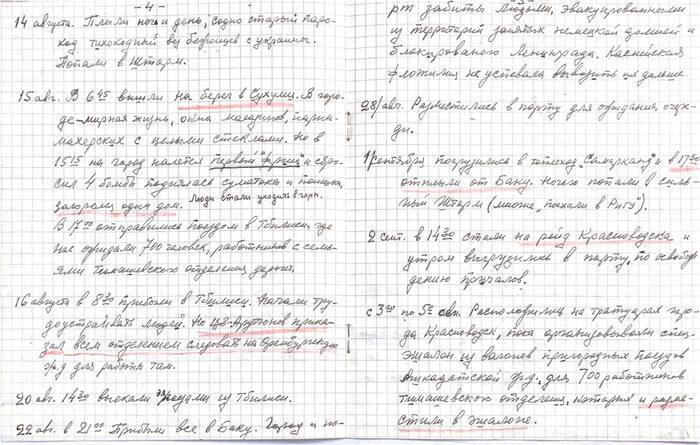 - 4 -
14 августа. Плыли ночь и день, судно старый паро-
ход тихоходный вез беженцев с украины.
Попали в Шторм.
15 авг. В 6 45 вышли на берег в Сухуми. В горо-
де - мирная жизнь, окна магазинов, парик-
махерских с целыми стеклами. Но в
15 15 на город налетел первый "фриц" и сбро-
сил 4 бомбы поднялась суматоха и паника,
загорелся один дом. Люди стали уходить в горы.
В 17 00 отправились поездом в Тбилиси, где
нас ожидали 700 человек, работников с семь-
ями Тимашевского отделения дороги.
16 августа в 8 30 прибыли в Тбилиси. Начали тру-
доустраивать людей. Но ЦЗ-Арутюнов прика-
зал всем отделением следовать на Оренбургскую
ж.д для работы там.
20 авг. 14 30 выехали поездом из Тбилиси.
22 авг. в 21 00 Прибыли все в Баку. Город и по-
рт забиты людьми, эвакуированными
из территорий занятых немецкой армией и
блокированого Ленинграда. Каспийская
флотилия не успевала вывозить их дальше.
28/авг. Разместились в порту для ожидания очере-
ди.
1/сентября погрузились в теплоход "Самарканд" и в 17 30
отплыли от Баку. Ночью попали в силь-
ный Шторм (многие "поехали в Ригу").
2 сент. в 14 30 стали на рейд Красноводска и
утром выгрузились в порту, по освобож-
дению причалов.
с 3 00 по 5 00 свн. Расположились на тротуарах горо-
да Красноводск, пока организовывали спец-
эшалон из вагонов пригородных поездов
Ашхадатской ж.д. для 700 работников
тимашевского отделения, которых и разме-
стили в эшалоне.